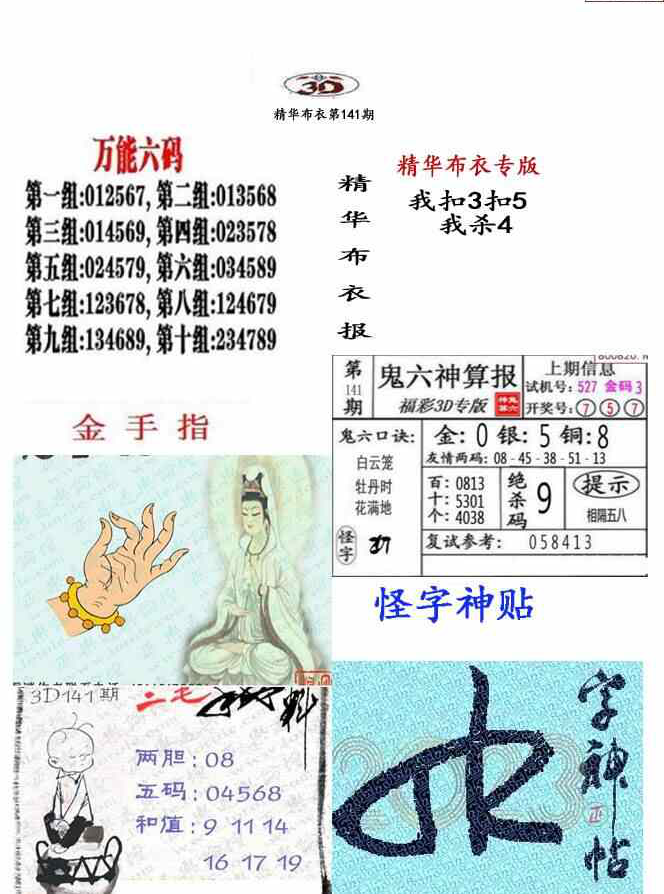 3D
精华布衣第141期
万能六码
第一组:012567,第二组:013568
第三组:014569,第四组:023578
第五组:024579,第六组:034589
第七组:123678,第八组:124679
第九组:134689,第十组:234789
精华布衣报
精华布衣专版
我扣3扣5
我杀4
金手指
第141期
鬼六神算报
福彩3D专版
上期信息
试机号:527 金码3
开奖号:7 5 7
鬼六口诀:
白云笼
牡丹时
花满地
怪字
金:0 银:5 铜:8
友情两码:08-45-38-51-13
百:0813
十:5301
个:4038
绝杀码 9
提示
相隔五八
复试参考: 058413
怪字神贴
3D141期
二毛
两胆:08
五码:04568
和值:9 11 14
16 17 19
字神帖
正